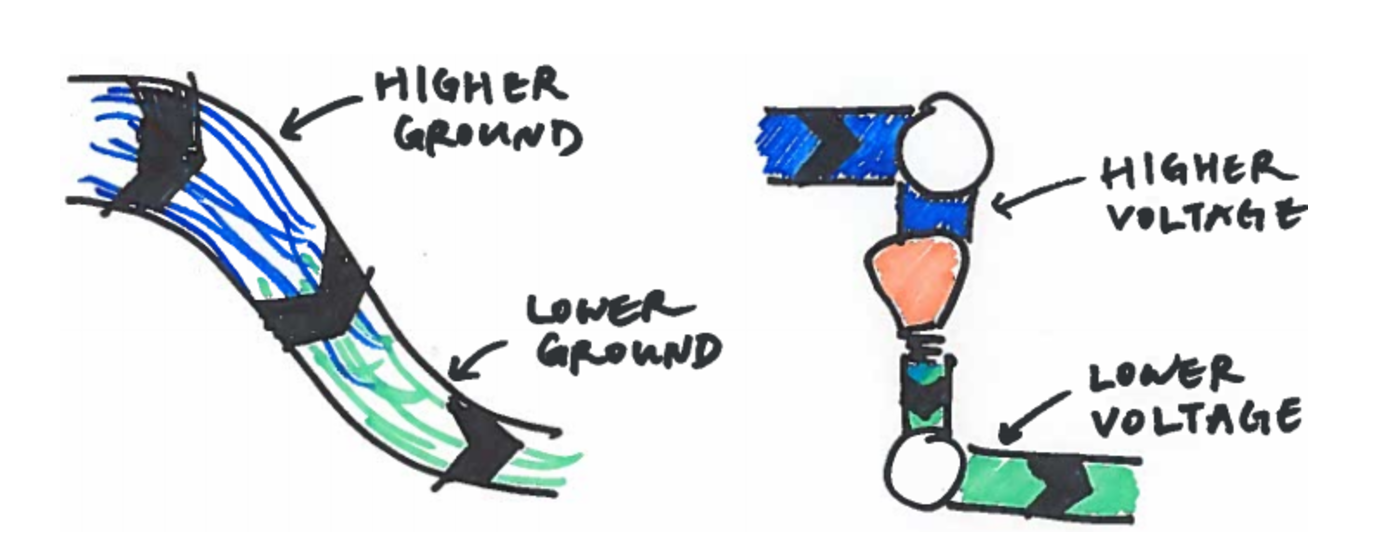 HIGHER
GROUND
LOWER
GROUND
HIGHER
VOLTAGE
LOWER
VOLTAGE